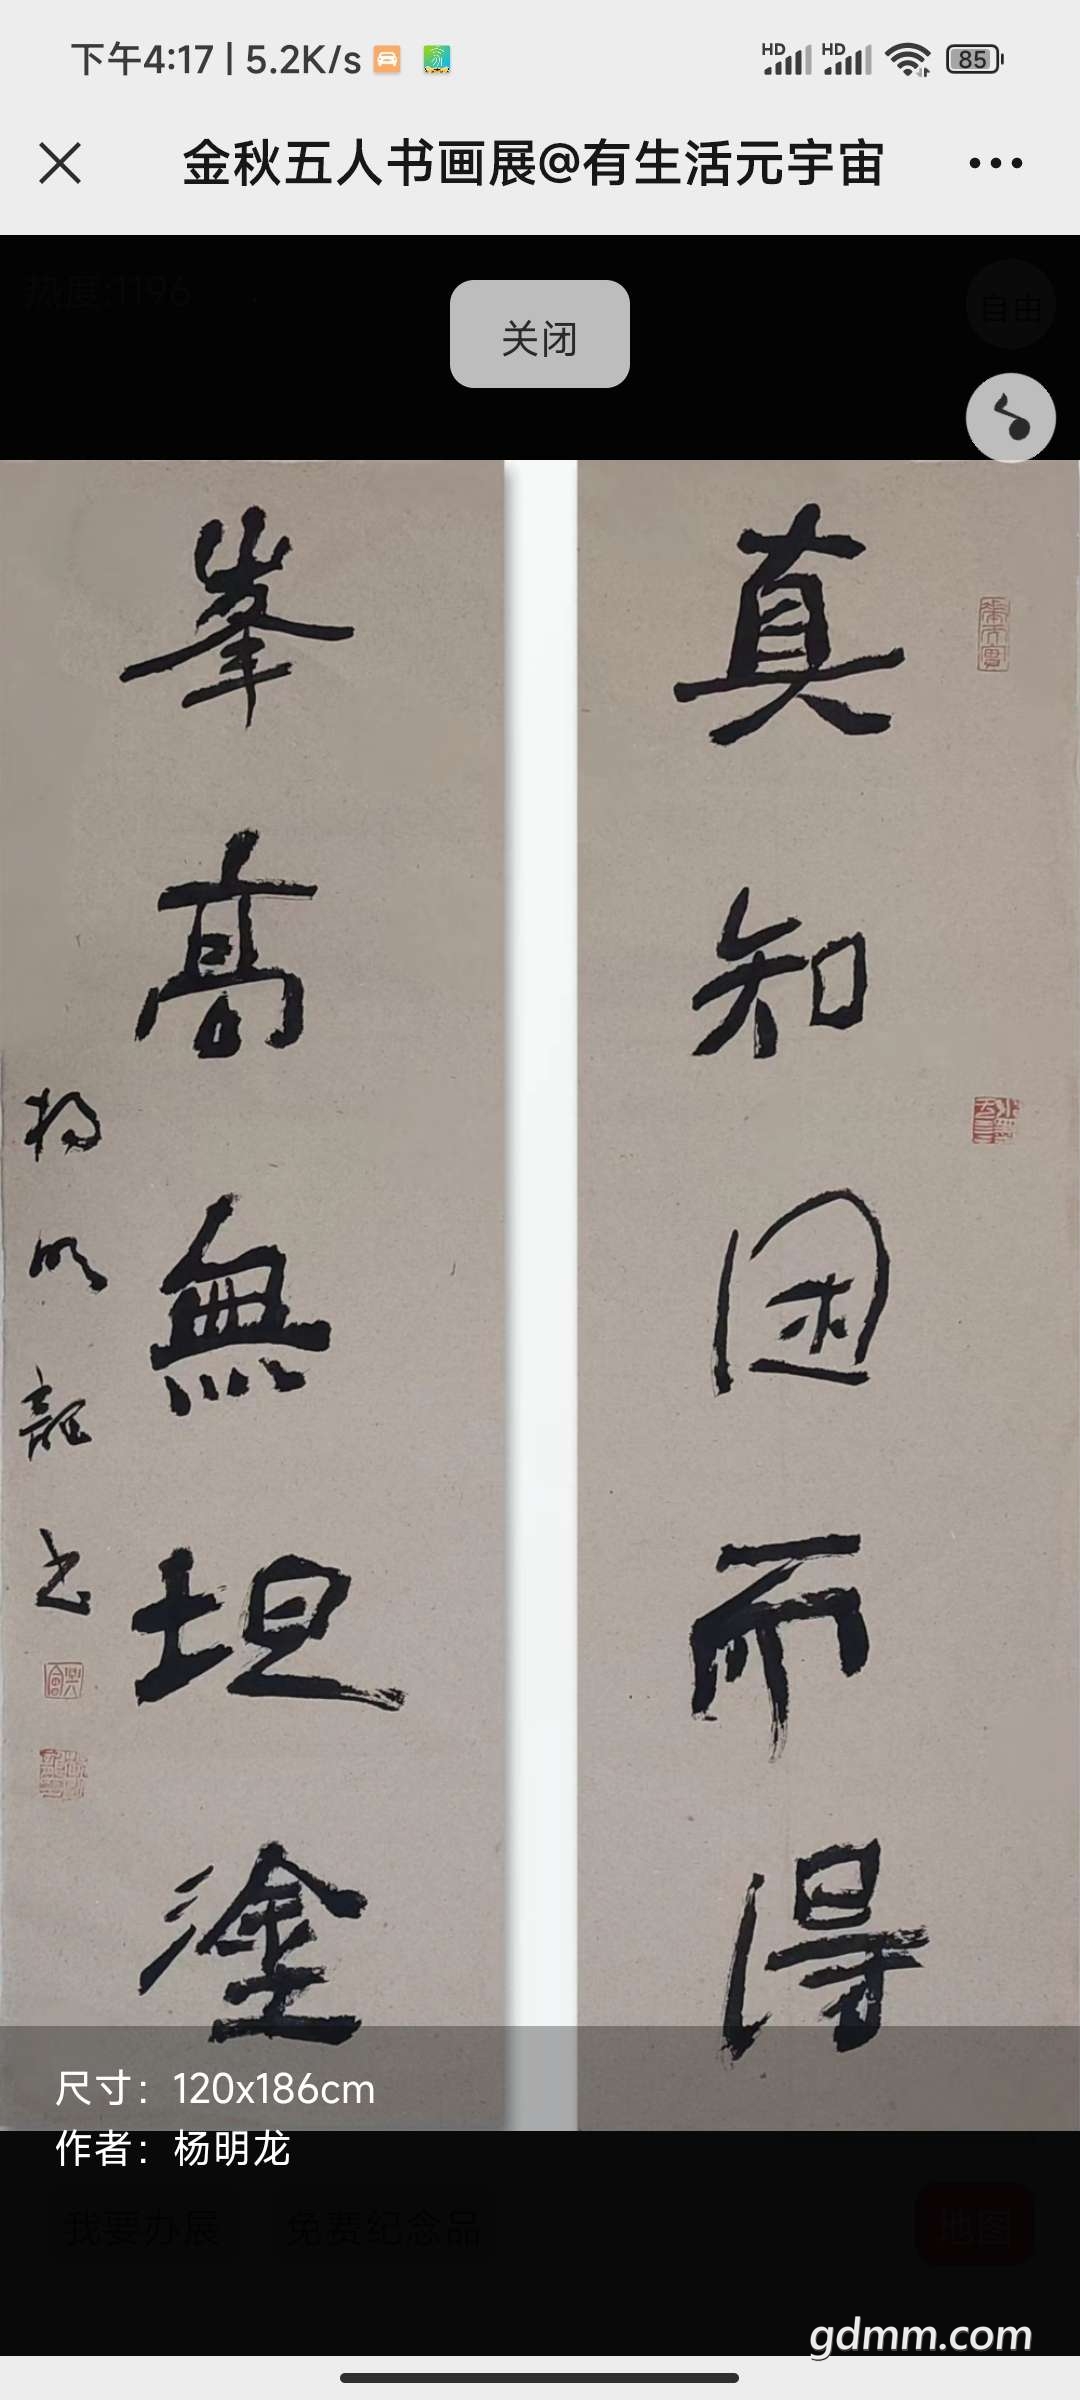 下午4:17 | 5.2K/s
HD HD 85
金秋五人书画展@有生活元宇宙
热度:1196
关闭
自由
真知困而得
峯高無坦塗
杨明龍书
尺寸：120x186cm
作者：杨明龙
我要办展
免费纪念品
地图
gdmm.com